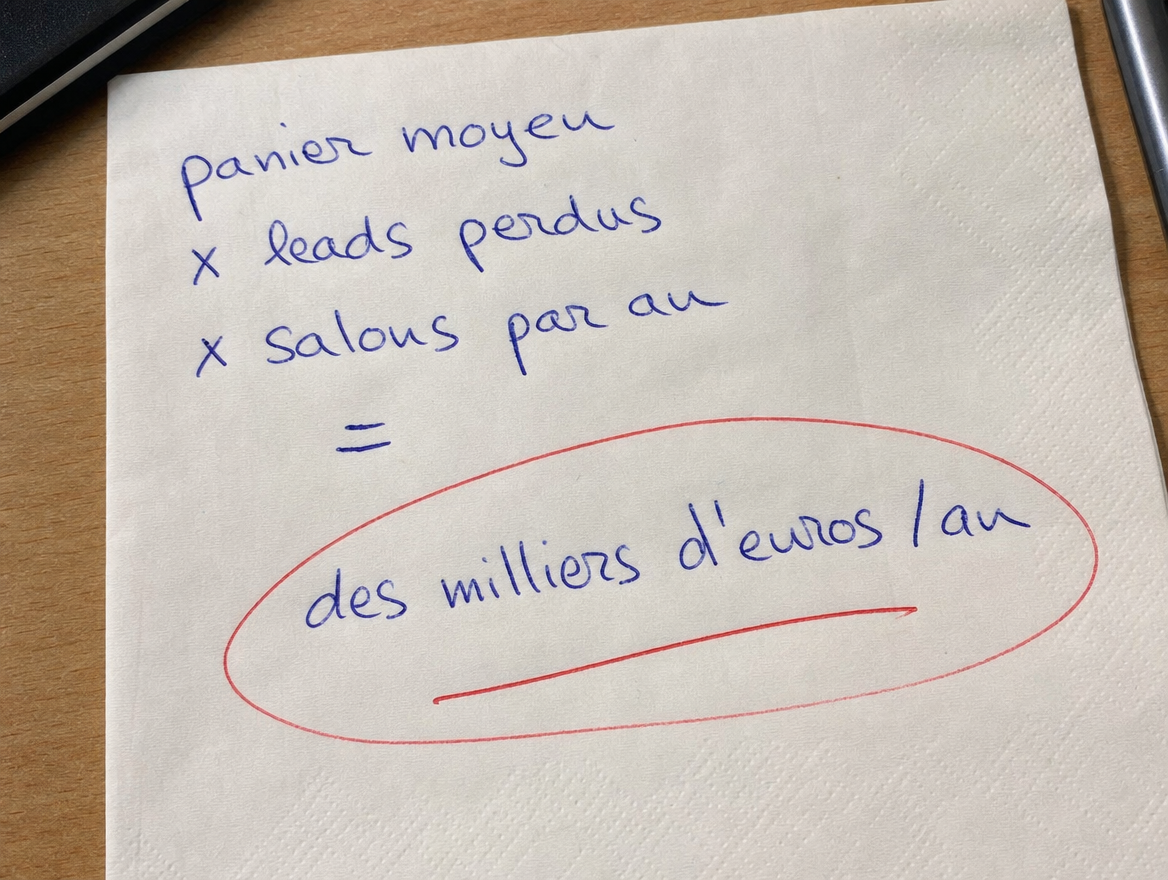 panier moyen
x leads perdus
x salons par an
=
des milliers d'euros / an